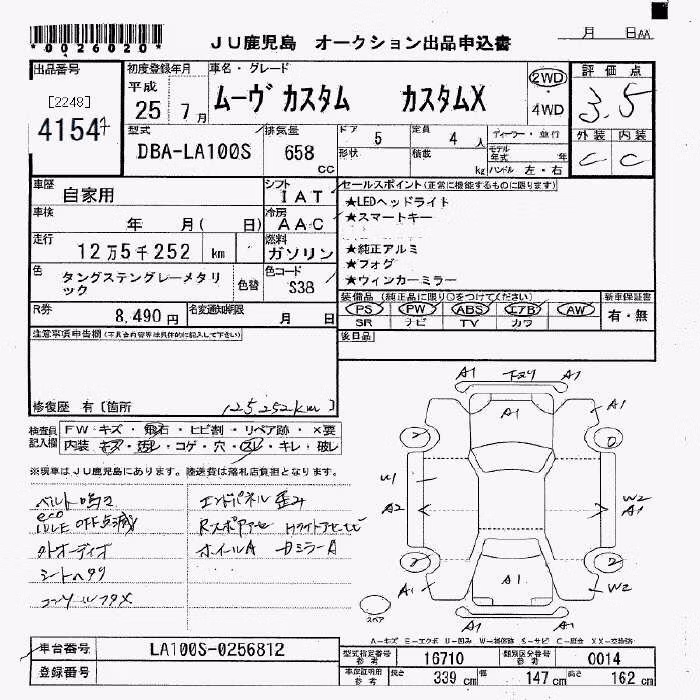 *0026020*
JU鹿児島 オークション出品申込書
月 日AA
出品番号
[2248]
4154
初度登録年月
平成
25 7月
車名・グレード
ムーヴ カスタム カスタムX
2WD
4WD
評価点
3.5
外装 内装
C C
型式
DBA-LA100S
排気量
658 cc
ドア 5
形状
定員 4 人
積載 kg
ディーラー・並行
モデル年式 年
ハンドル 左・右
車歴 自家用
シフト IAT
車検 年 月( 日)
冷房 AAC
走行 12万5千252 km
燃料 ガソリン
色 タングステングレーメタリック
色替
色コード S38
セールスポイント(正常に機能するものに限ります)
★LEDヘッドライト
★スマートキー
★純正アルミ
★フォグ
★ウィンカーミラー
R券 8,490円
名変通知期限 月 日
装備品 (純正品に限り○をつけてください)
PS PW ABS エアB AW
SR ナビ TV カワ
新車保証書
有・無
注意事項申告欄
後日品
修復歴 有〔箇所 125252km 〕
検査員記入欄
FW キズ・飛石・ヒビ割・リペア跡・×要
内装 キズ・汚レ・コゲ・穴・スレ・キレ・破レ
※現車はJU鹿児島にあります。陸送費は落札店負担となります。
ベルト鳴き エンドパネル歪み
eco IDLE OFF点滅
外オーディオ ホイールA
シートヘタリ
A1 下ヌリ A1
A1 A1
2 0
U1 W2
A2 A1
2 2
A1 A1 W2
A1 A1
スペア
A-キズ E-エクボ U-凹み W-補修跡 S-サビ C-腐食 XX-交換済
車台番号 LA100S-0256812
登録番号
型式指定番号 参考 16710
類別区分番号 参考 0014
車体証明用 参考 長さ 339 cm 幅 147 cm 高さ 162 cm